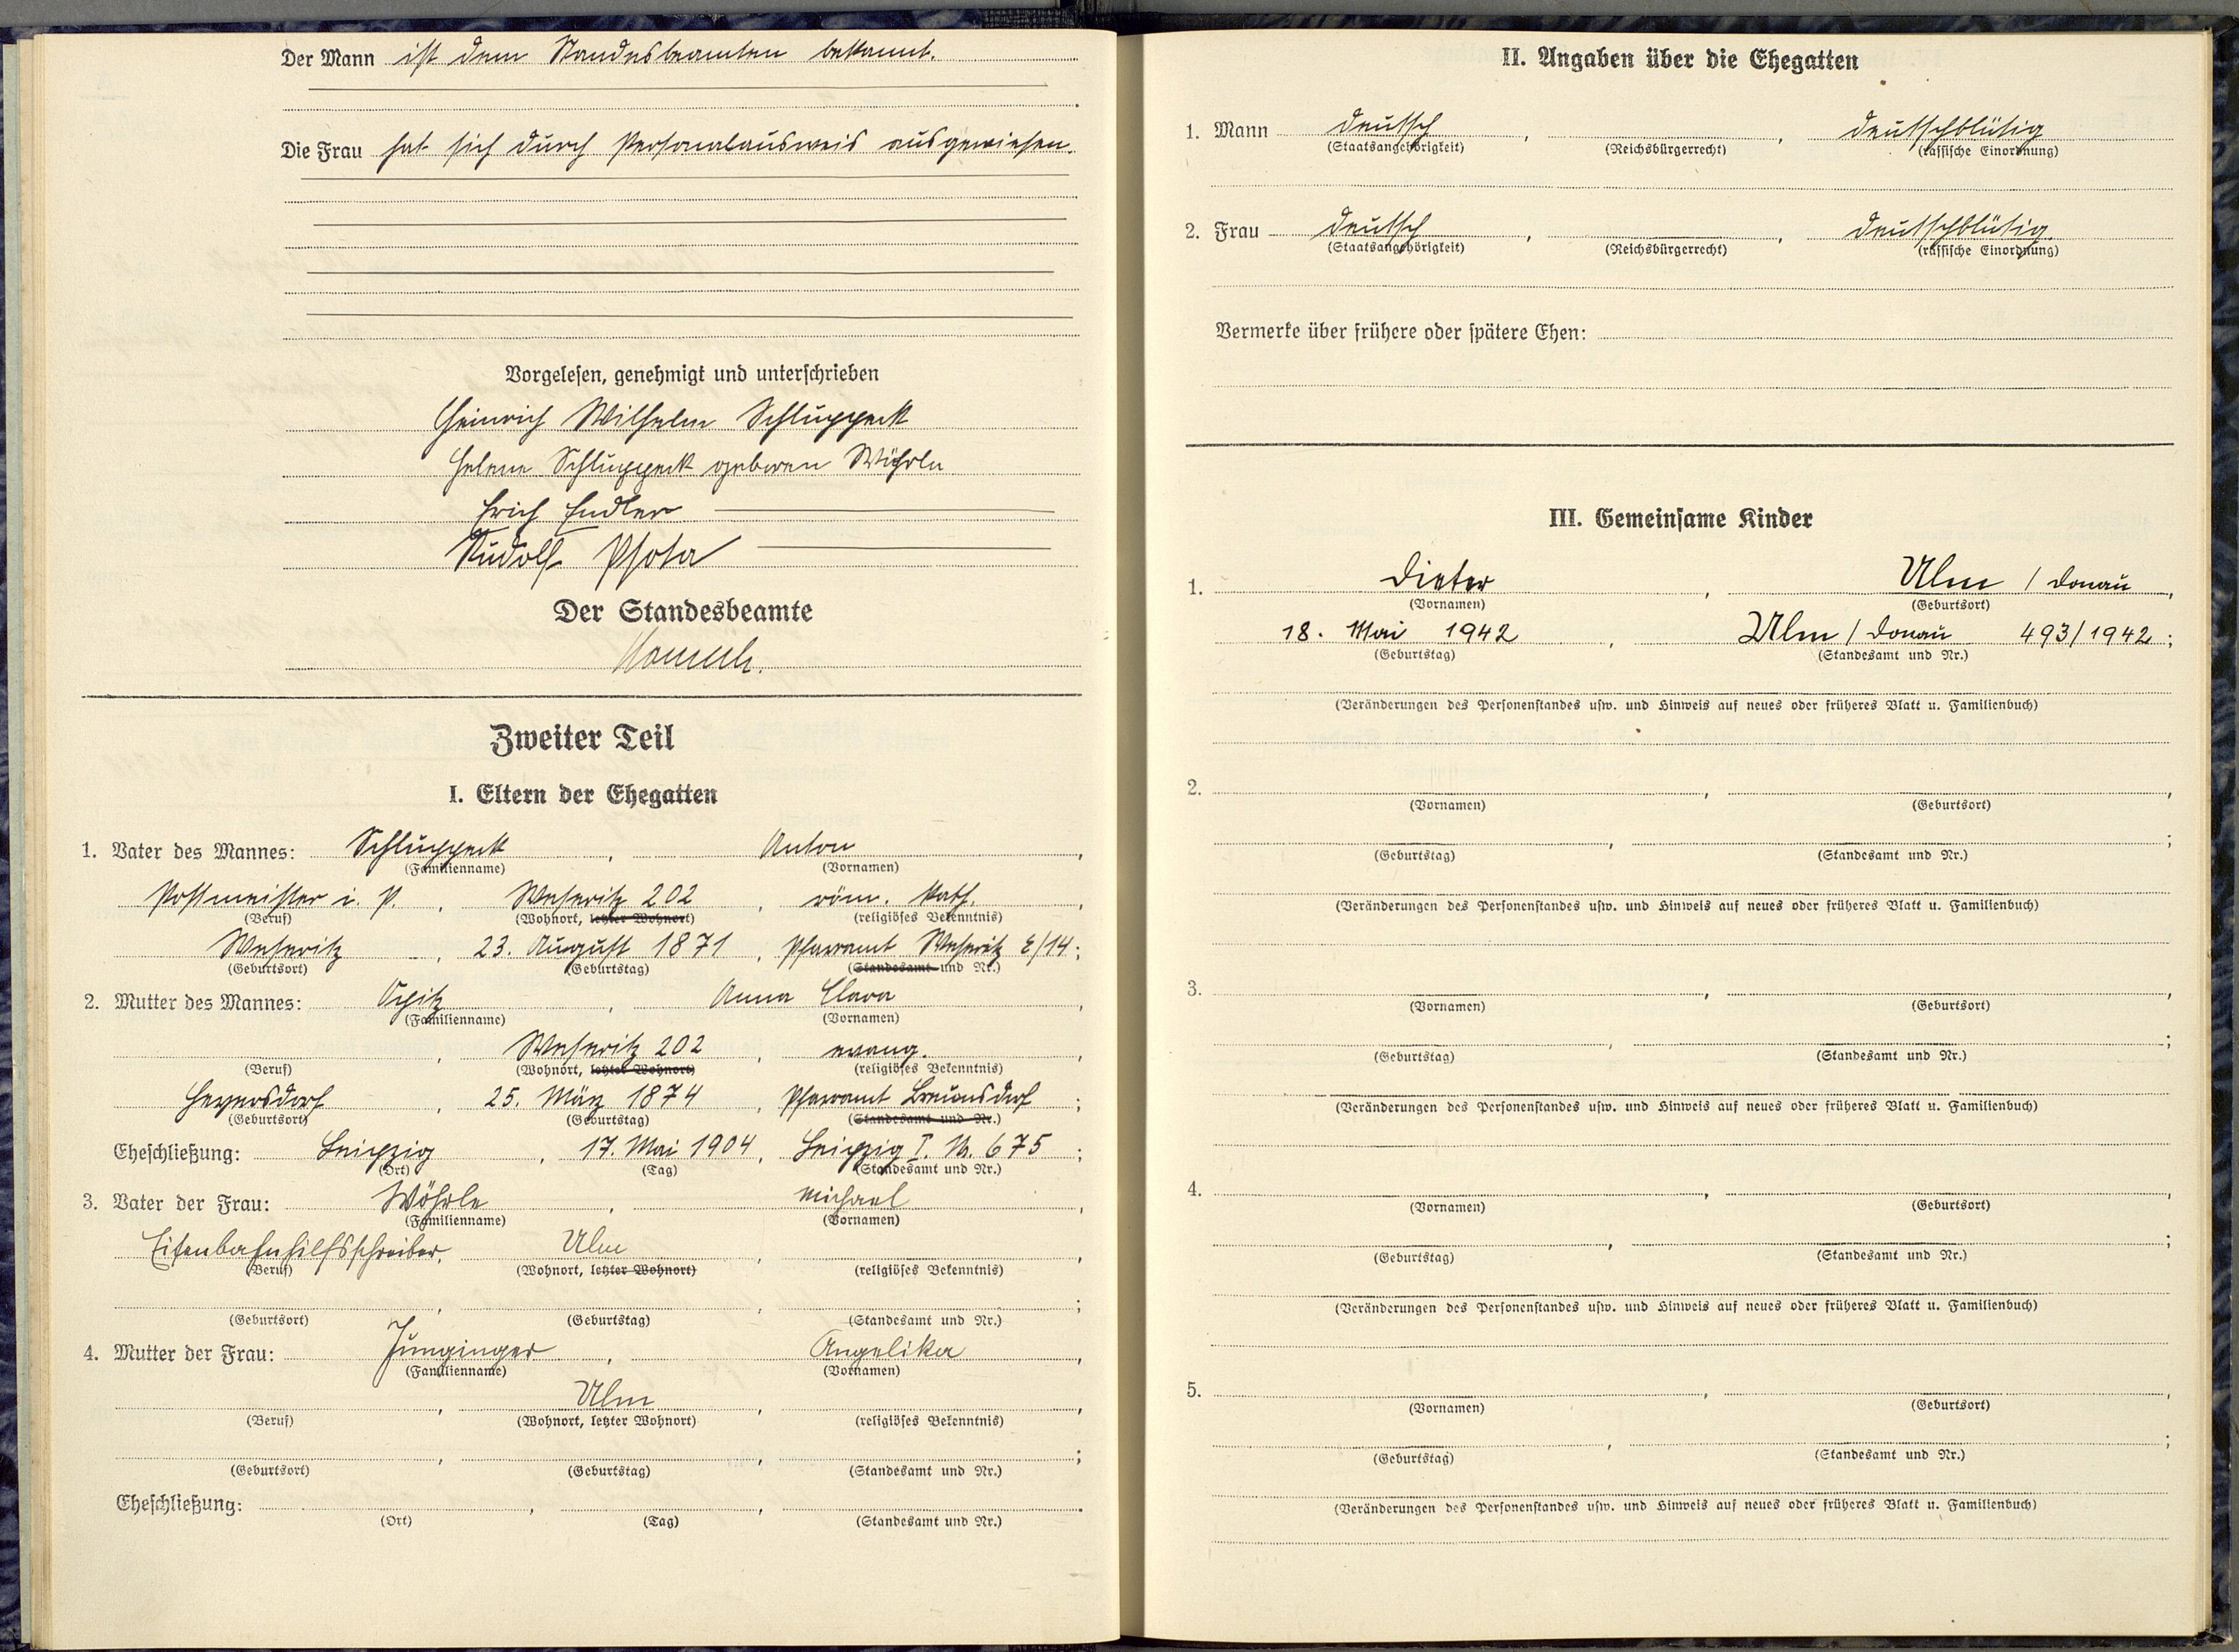 Der Mann ist dem Standesbeamten bekannt.
Die Frau hat sich durch Personalausweis ausgewiesen.
Vorgelesen, genehmigt und unterschrieben
Heinrich Wilhelm Schluppeck
Helene Schluppeck geboren Wöhrle
Erich Endler
Rudolf Psota
Der Standesbeamte
Zweiter Teil
I. Eltern der Ehegatten
1. Vater des Mannes: Schluppeck, Anton,
(Familienname) (Vornamen)
Postmeister i. P., Weseritz 202, röm. kath.,
(Beruf) (Wohnort, letzter Wohnort) (religiöses Bekenntnis)
Weseritz, 23. August 1871, Pfarramt Weseritz E/14;
(Geburtsort) (Geburtstag) (Standesamt und Nr.)
2. Mutter des Mannes: Opitz, Anna Clara,
(Familienname) (Vornamen)
, Weseritz 202, evang.,
(Beruf) (Wohnort, letzter Wohnort) (religiöses Bekenntnis)
Heyersdorf, 25. März 1874, Pfarramt Braunsdorf;
(Geburtsort) (Geburtstag) (Standesamt und Nr.)
Eheschließung: Leipzig, 17. Mai 1904, Leipzig I. Nr. 675;
(Ort) (Tag) (Standesamt und Nr.)
3. Vater der Frau: Wöhrle, Michael,
(Familienname) (Vornamen)
Eisenbahnhilfsschreiber, Ulm, ,
(Beruf) (Wohnort, letzter Wohnort) (religiöses Bekenntnis)
, , ;
(Geburtsort) (Geburtstag) (Standesamt und Nr.)
4. Mutter der Frau: Junginger, Angelika,
(Familienname) (Vornamen)
, Ulm, ,
(Beruf) (Wohnort, letzter Wohnort) (religiöses Bekenntnis)
, , ;
(Geburtsort) (Geburtstag) (Standesamt und Nr.)
Eheschließung: , , .
(Ort) (Tag) (Standesamt und Nr.)
II. Angaben über die Ehegatten
1. Mann deutsch, , deutschblütig
(Staatsangehörigkeit) (Reichsbürgerrecht) (rassische Einordnung)
2. Frau deutsch, , deutschblütig.
(Staatsangehörigkeit) (Reichsbürgerrecht) (rassische Einordnung)
Vermerke über frühere oder spätere Ehen:
III. Gemeinsame Kinder
1. Dieter, Ulm / Donau,
(Vornamen) (Geburtsort)
18. Mai 1942, Ulm / Donau 493/1942;
(Geburtstag) (Standesamt und Nr.)
(Veränderungen des Personenstandes usw. und Hinweis auf neues oder früheres Blatt u. Familienbuch)
2. , ,
(Vornamen) (Geburtsort)
, ;
(Geburtstag) (Standesamt und Nr.)
(Veränderungen des Personenstandes usw. und Hinweis auf neues oder früheres Blatt u. Familienbuch)
3. , ,
(Vornamen) (Geburtsort)
, ;
(Geburtstag) (Standesamt und Nr.)
(Veränderungen des Personenstandes usw. und Hinweis auf neues oder früheres Blatt u. Familienbuch)
4. , ,
(Vornamen) (Geburtsort)
, ;
(Geburtstag) (Standesamt und Nr.)
(Veränderungen des Personenstandes usw. und Hinweis auf neues oder früheres Blatt u. Familienbuch)
5. , ,
(Vornamen) (Geburtsort)
, ;
(Geburtstag) (Standesamt und Nr.)
(Veränderungen des Personenstandes usw. und Hinweis auf neues oder früheres Blatt u. Familienbuch)